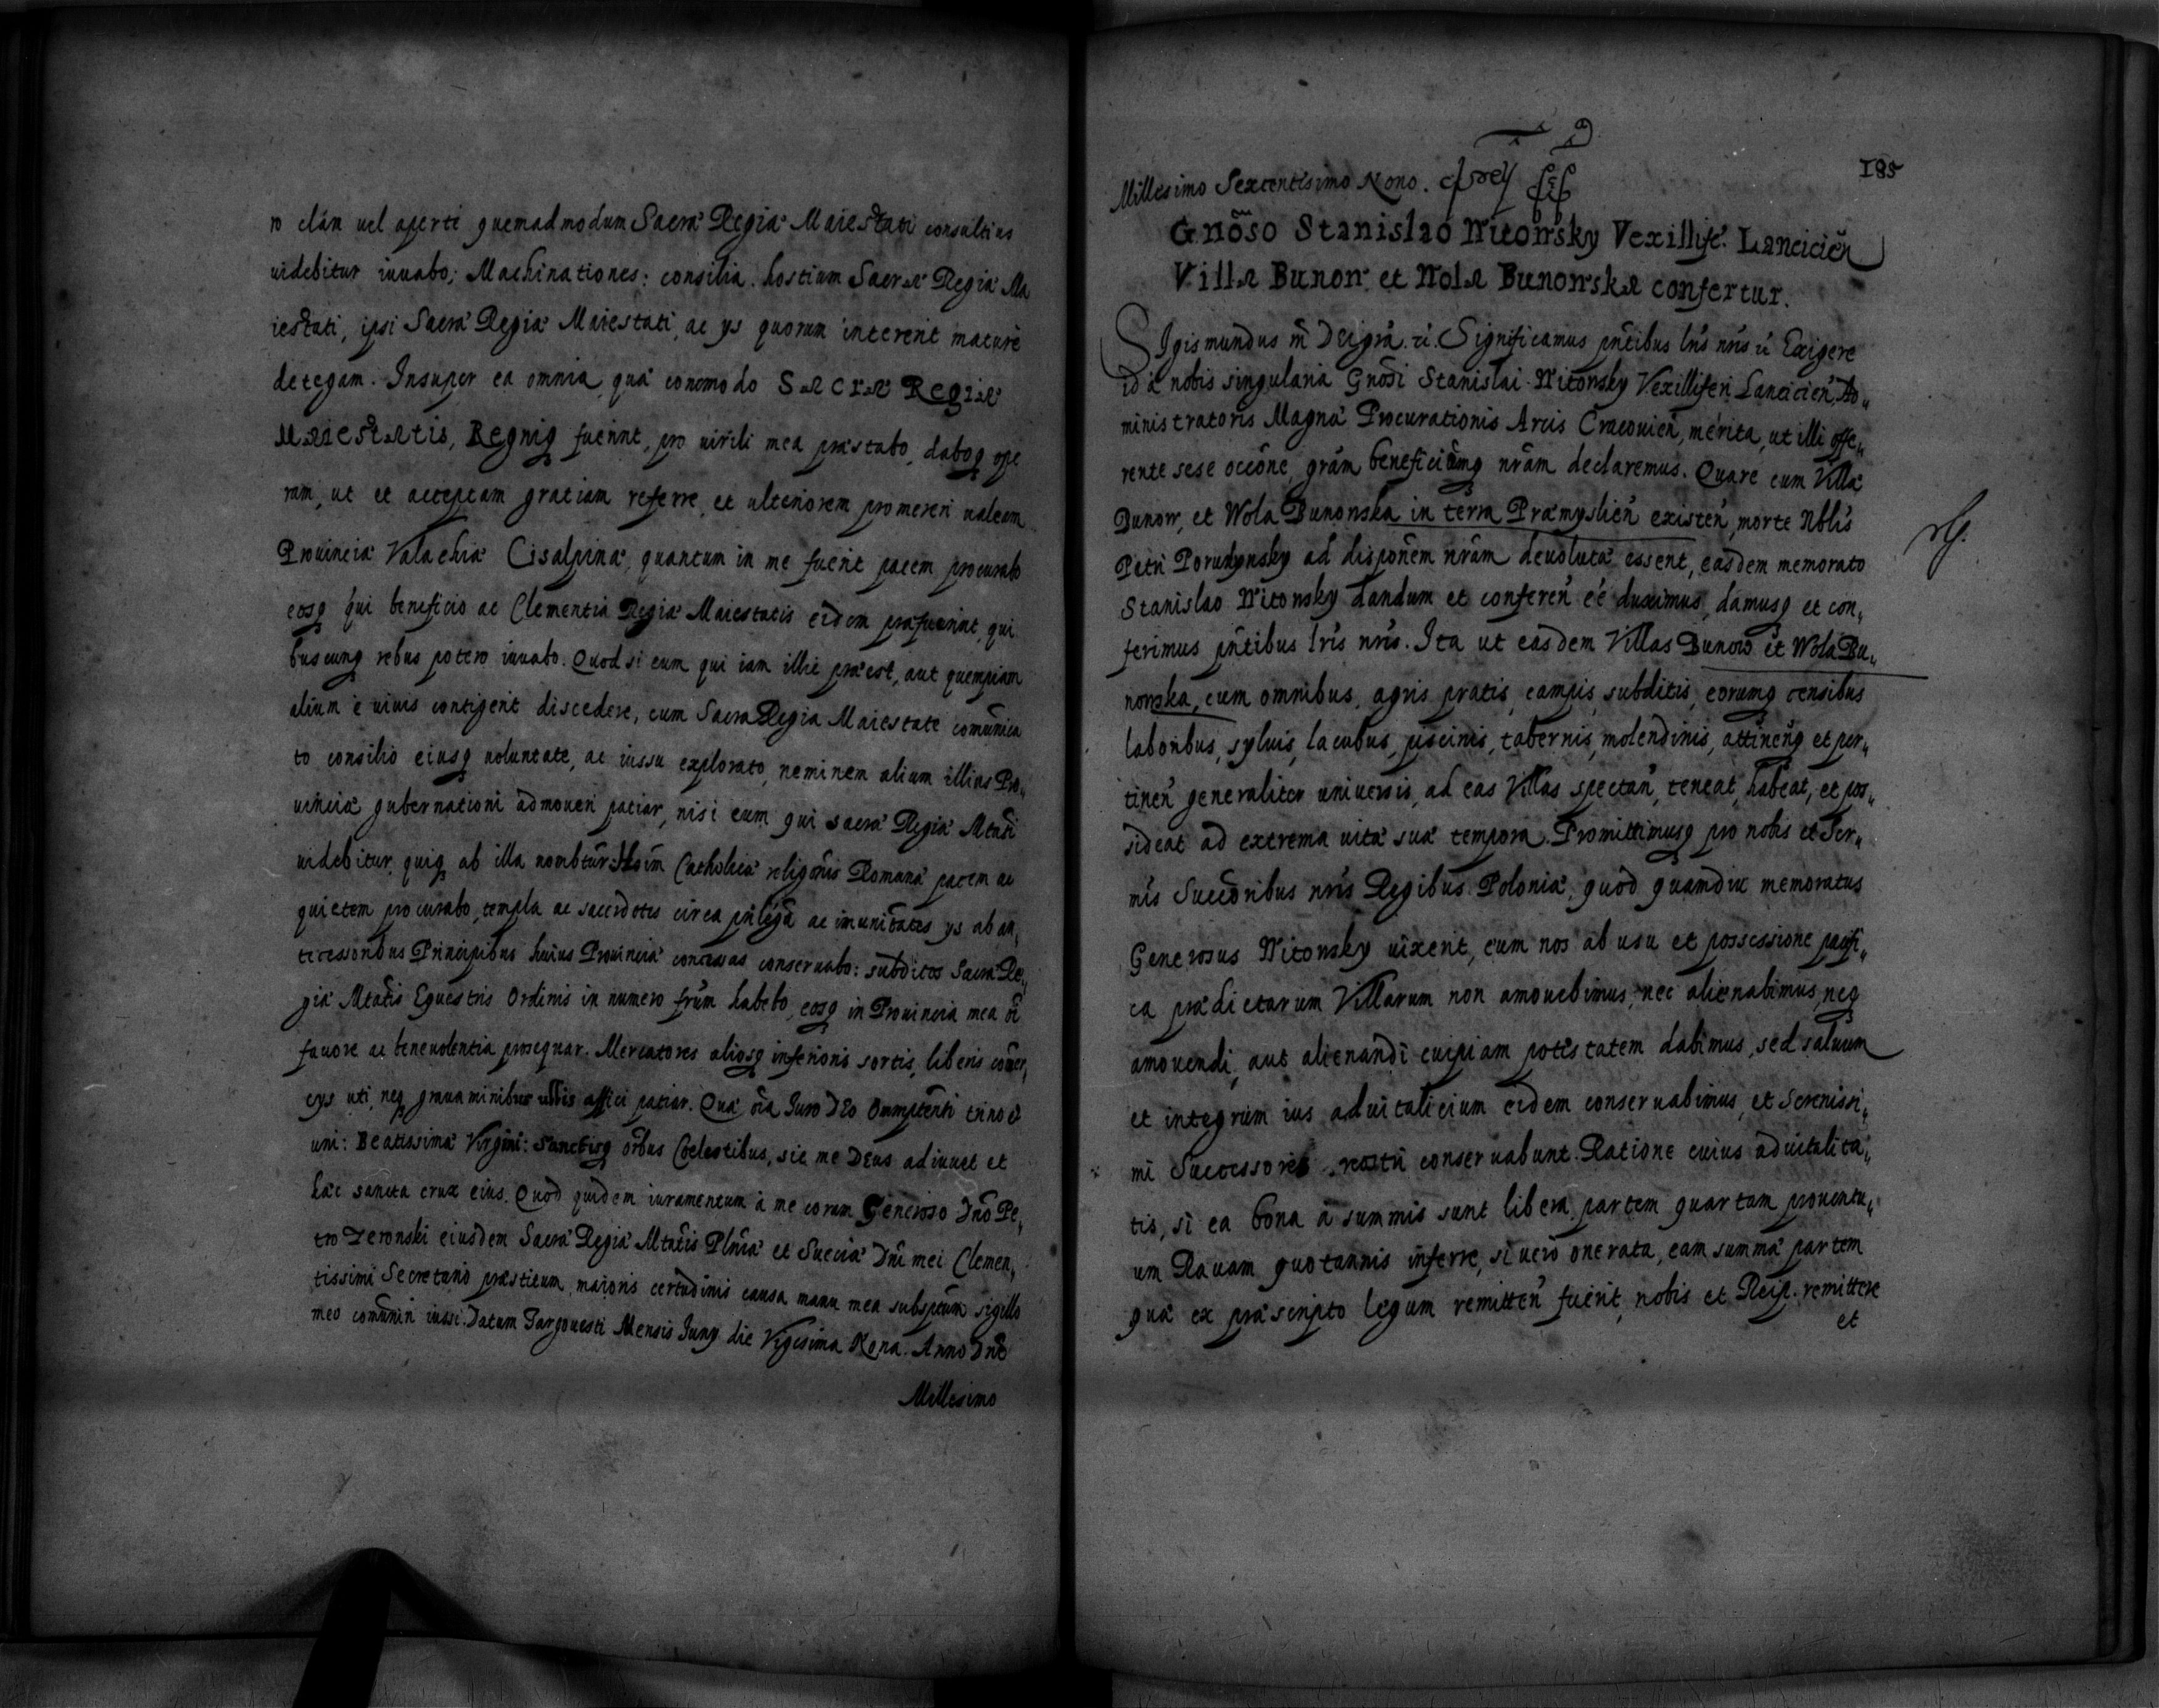 ro clàm uel aperte quemadmodum Sacræ Regiæ Maiestati consultius
uidebitur iuuabo; Machinationes: consilia. hostium Sacræ Regiæ Ma
iestati, ipsi Sacræ Regiæ Maiestati, ac ys quorum intererit mature
detegam. Insuper ea omnia, quæ commodo Sacræ Regiæ
Maiestatis, Regniq fuerint, pro uirili mea præstabo, daboq ope
ram, ut et acceptam gratiam referre, et ulteriorem promereri ualeam
Prouinciæ Valachiæ Cisalpinæ, quantum in me fuerit pacem procurabo
eosq qui beneficio ac Clementia Regiæ Maiestatis eidem præfuerint, qui
buscunq rebus potero iuuabo. Quod si eum qui iam illic præest, aut quempiam
alium è uiuis contigerit discedere, cum Sacra Regia Maiestate comunica
to consilio eiusq uoluntate, ac iussu explorato, neminem alium illius Pro„
uinciæ gubernationi admoueri patiar, nisi eum qui sacræ Regiæ Mtati
uidebitur, quiq ab illa nombtur: Catholicæ religõnis Romanæ pacem ac
quietem procurabo, templa ac sacerdotes circa priligia ac imunitates ys ab an„
tecessoribus Principibus huius Prouinciæ concessas conseruabo: subditos Sacræ Re„
giæ Mtatis Equestris Ordinis in numero frum habebo, eosq in Prouincia mea oi
fauore ac beneuolentia prosequar. Mercatores aliosq inferioris sortis, liberis comer„
cys uti, neq grauaminibus ullis affici patiar. Quæ oia Iuro DEo Omnptenti trino et
uni: Beatissimæ Virgini: Sanctisq oibus Coelestibus, sic me Deus adiuuet et
hæc sancta crux eius. Quod quidem iuramentum à me coram Generoso Dno Pe„
tro Zeronski eiusdem Sacræ Regiæ Mtatis Plniæ et Sueciæ Dni mei Clemen„
tissimi Secretario præstitum, maioris certudinis causa manu mea subsptum sigillo
meo comuniri iussi. Datum Targouesti Mensis Iuny die Vigesima Nona. Anno Dni
Millesimo
185
Millesimo Sexcentisimo Nono.
Gnõso Stanislao Witowsky Vexillife. Lancicien
Villæ Bunow et Wolæ Bunowskæ confertur.
SIgismundus III DEigra. Significamus pntibus lris nris Exigere
id à nobis singularia Gnosi Stanislai Witowsky Vexilliferi Lancicien, Ad„
ministratoris Magnæ Procurationis Arcis Cracouien, merita, ut illi offe„
rente sese occone, gram beneficiumq nram declaremus. Quare cum Villæ
Bunow, et Wola Bunowska in terra Præmyslien existen, morte Nblis
Petri Porudynsky ad disponem nram deuolutæ essent, easdem memorato
Stanislao Witowsky dandum et conferen ee duximus, damusq et con„
ferimus pntibus lris nris. Ita ut easdem Villas Bunow et Wola Bu„
nowska, cum omnibus, agris, pratis, campis, subditis, eorumq censibus
laboribus, syluis, lacubus, piscinis, tabernis, molendinis, attinenq et per„
tinen generaliter uniuersis, ad eas Villas spectan, teneat, habeat, et pos„
sideat ad extrema uitæ suæ tempora. Promittimusq pro nobis et Ser„
mis Succoribus nris Regibus Poloniæ, quod quamdiu memoratus
Generosus Witowsky uixerit, eum nos ab usu et possessione pacifi„
ca prædictarum Villarum non amouebimus, nec alienabimus, neq
amouendi, aut alienandi cuipiam potestatem dabimus, sed saluum
et integrum ius aduitalicium eidem conseruabimus, et Serenissi„
mi Successores nostri conseruabunt. Ratione cuius aduitalita„
tis, si ea bona à summis sunt libera, partem quartam prouentu„
um Rauam quotannis inferre, si uero onerata, eam summæ partem
quæ ex præscripto legum remitten fuerit, nobis et Reip. remittere
et